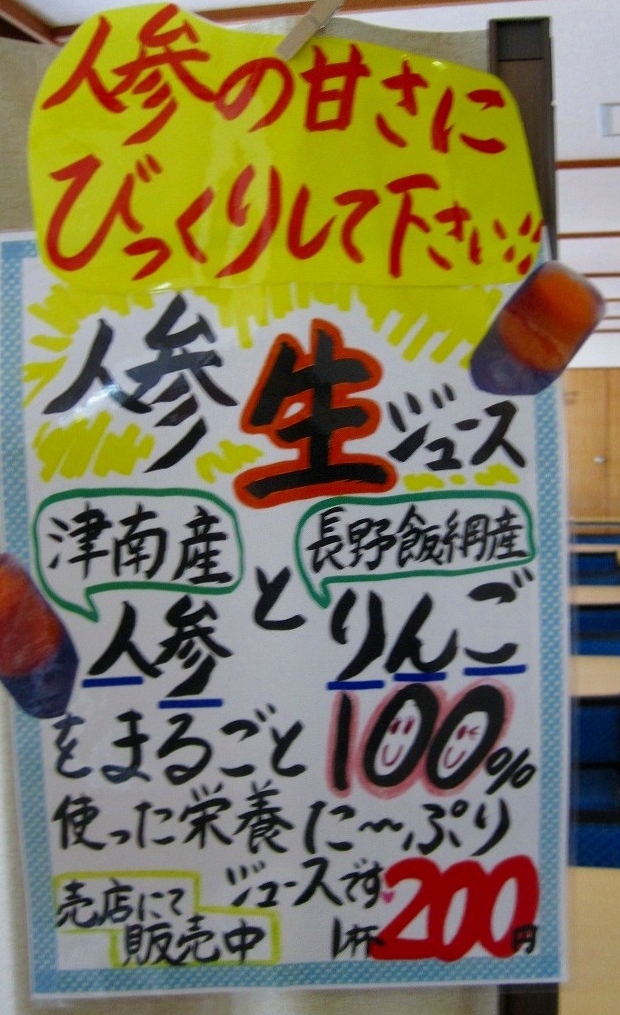 人参の甘さに
びっくりして下さい!!
人参生ジュース
津南産 長野飯綱産
人参とりんご
をまるごと100%
使った栄養た〜ぷり
ジュースです
売店にて
販売中
1杯200円